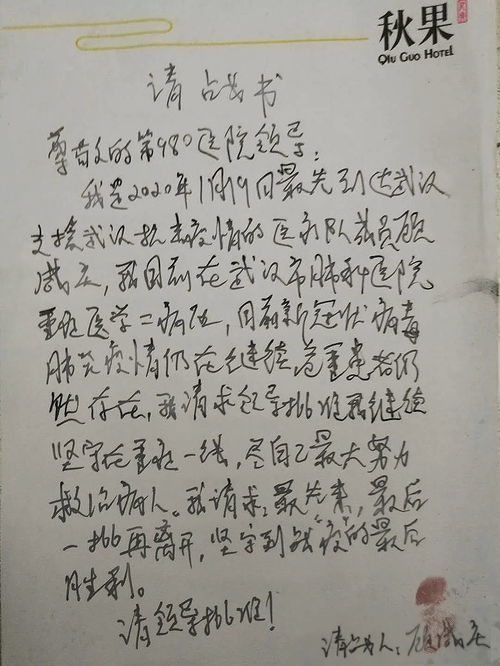 秋果
Qiu Guo Hotel
请占戈书
尊敬的第980医院领导:
我是2020年1月19日最先到达武汉
支援武汉抗击疫情的医疗队队员顾
成庆,我目前在武汉市肺科医院
重症医学二病区,目前新冠状病毒
肺炎疫情仍在继续,危重患者仍
然存在,我请求领导批准我继续
坚守在重症一线,尽自己最大努力
救治病人。我请求:最先来,最后
一批再离开,坚守到战"疫"的最后
胜利。
请领导批准!
请战人:顾